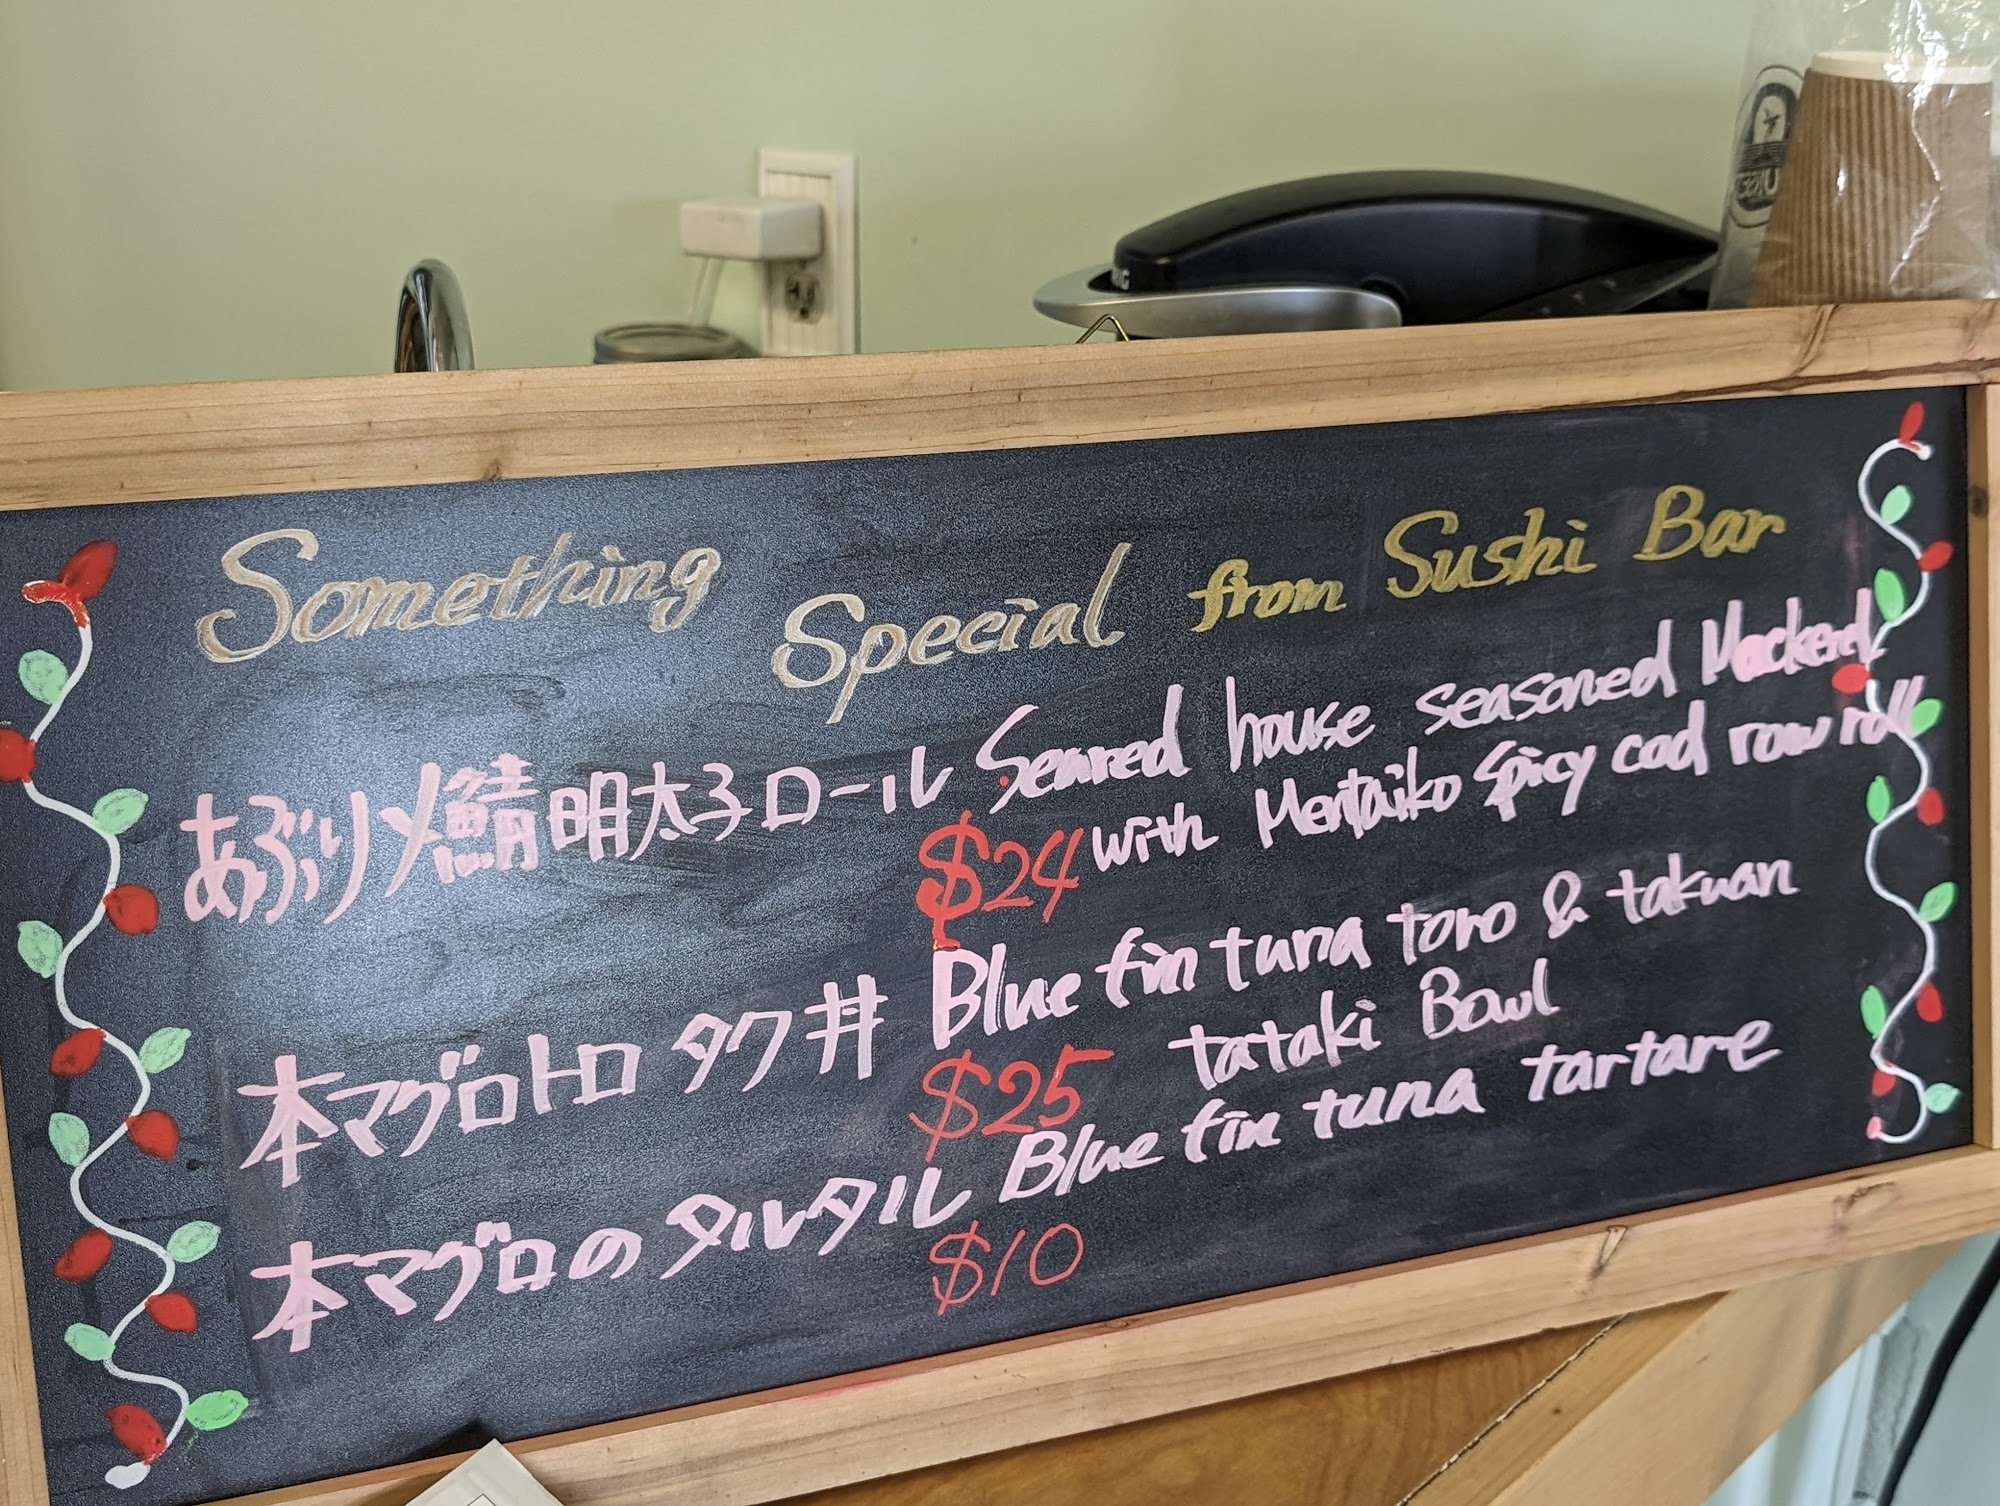 Something Special from Sushi Bar
あぶり〆鯖明太子ロール Seared house seasoned Mackerel
$24 with Mentaiko spicy cod row roll
本マグロトロ タク丼 Blue fin tuna toro & takuan
$25 tataki Bowl
本マグロのタルタル Blue fin tuna tartare
$10